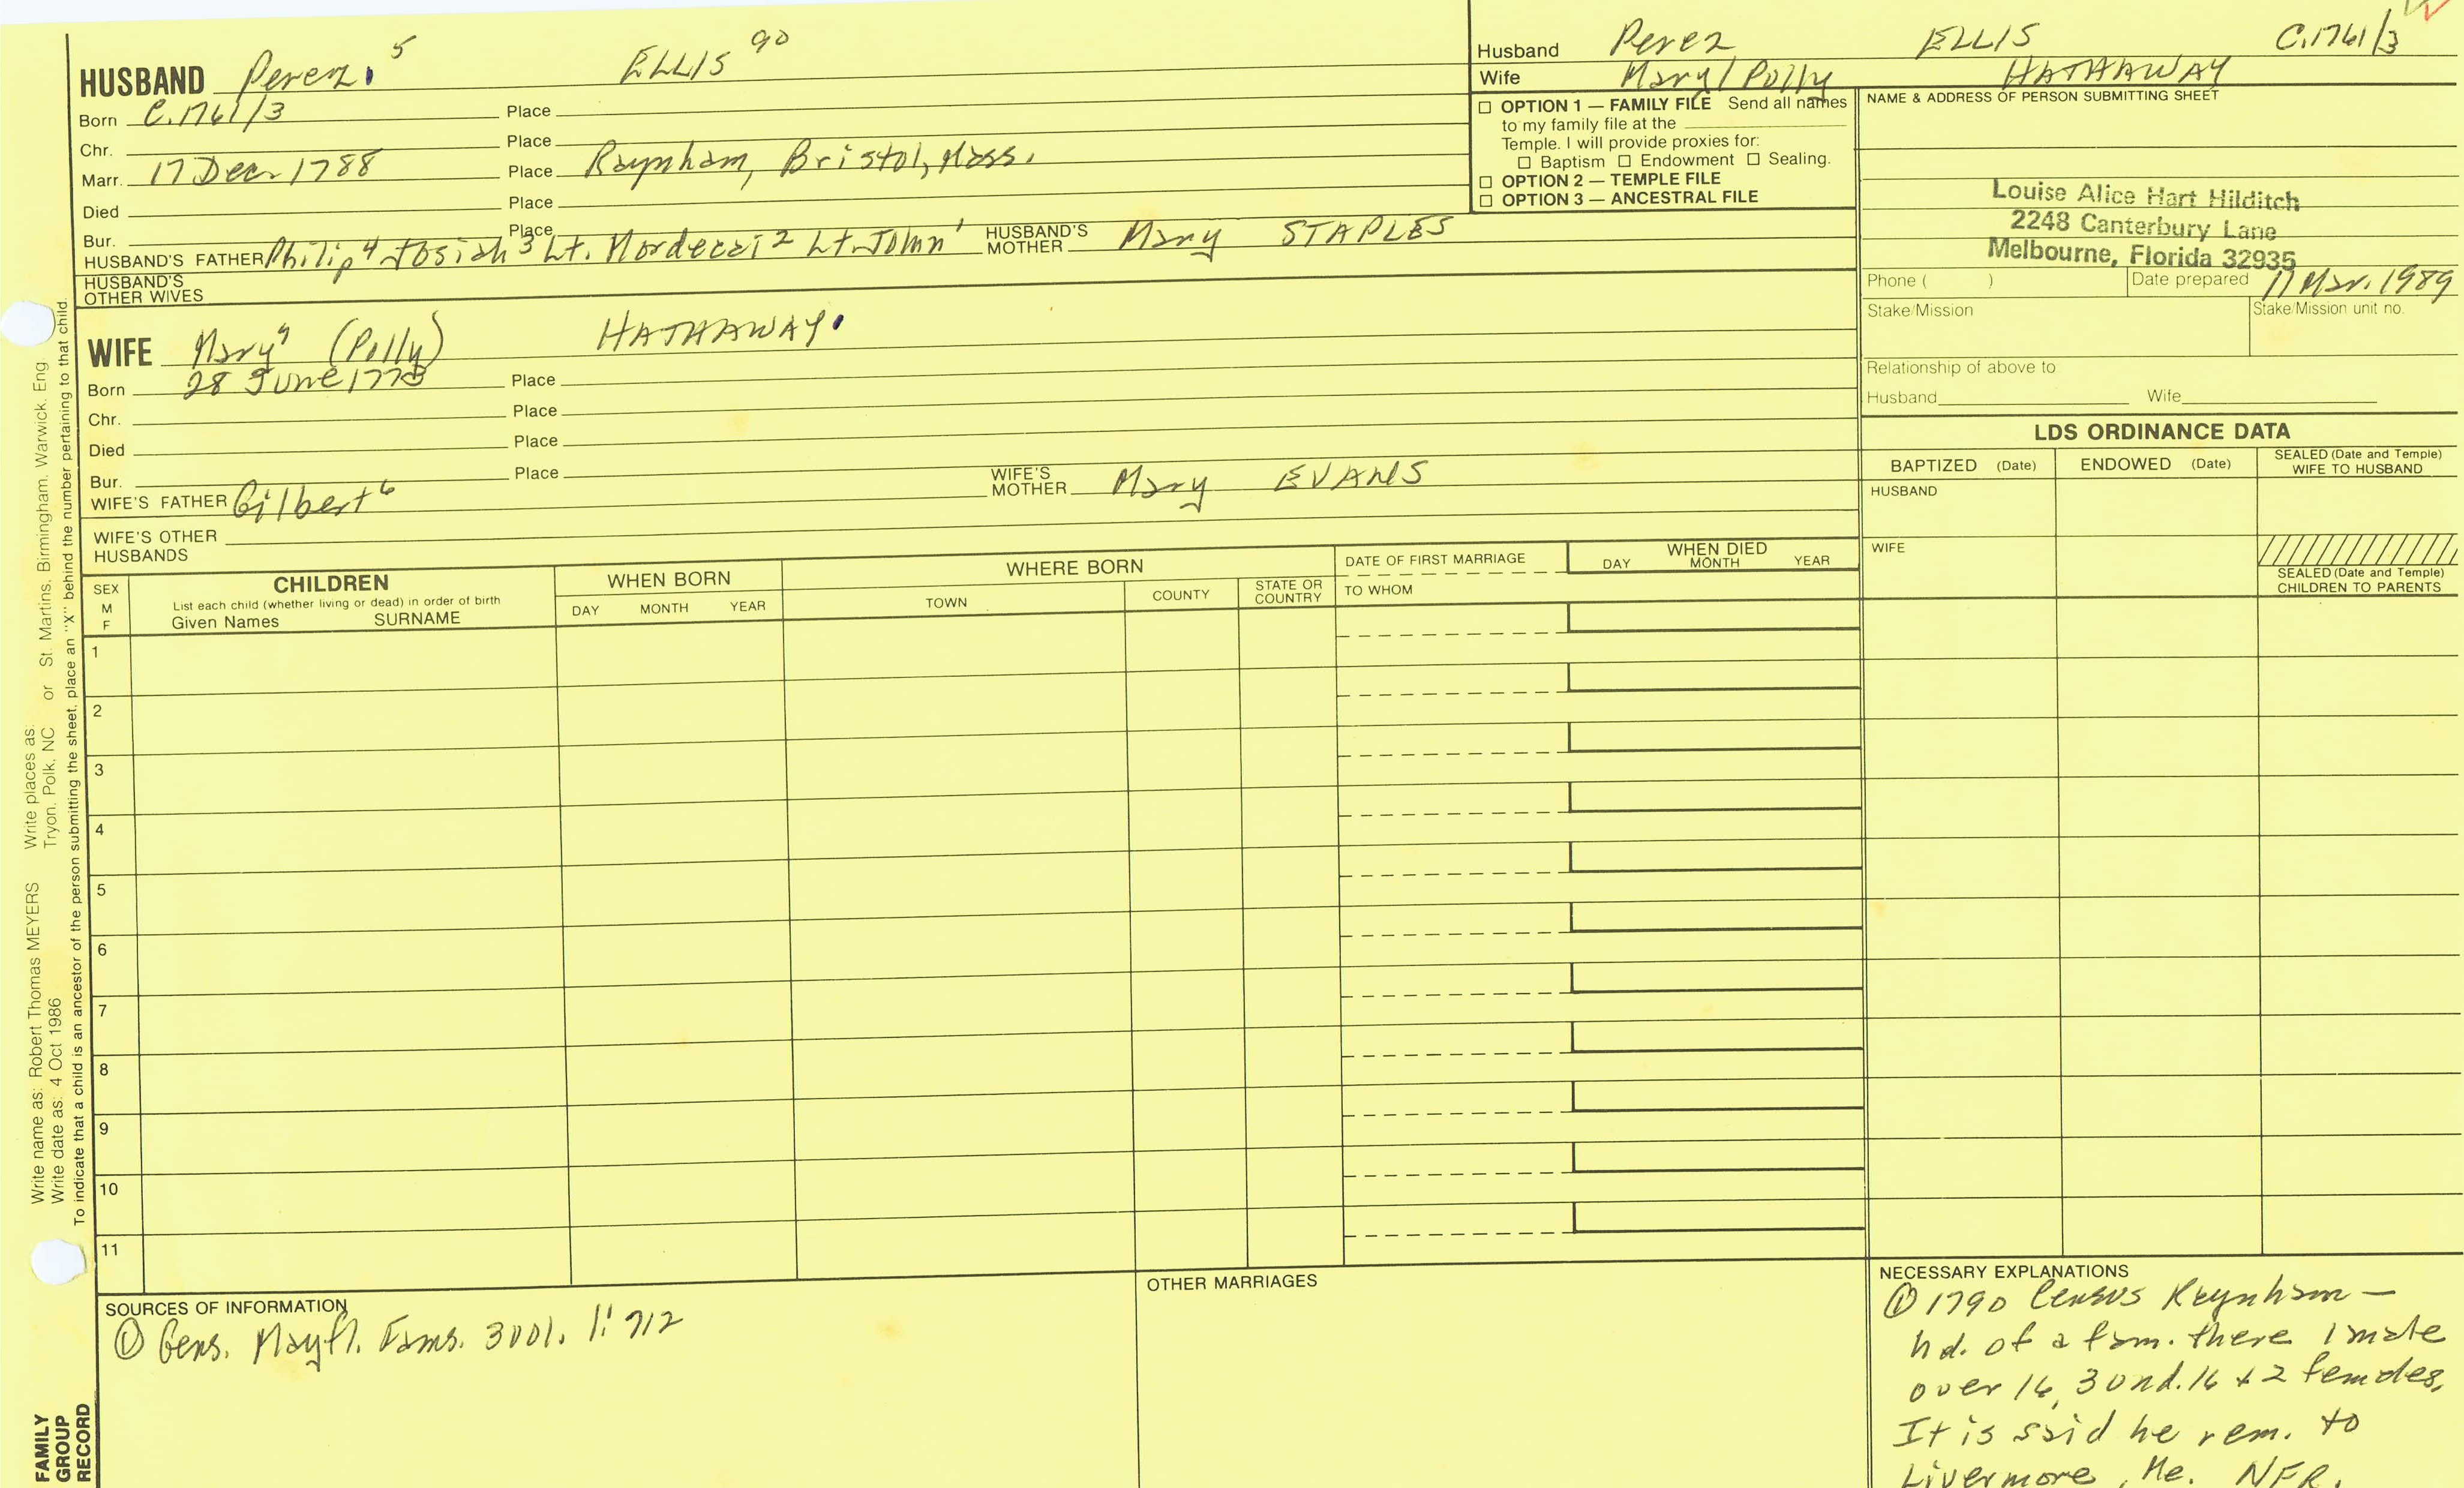 HUSBAND Perez⁵ ELLIS 90
Born C.1761/3 Place
Chr. Place
Marr. 17 Dec 1788 Place Raynham, Bristol, Mass.
Died Place
Bur. Place
HUSBAND'S FATHER Philip⁴ Josiah³ Lt. Mordecai² Lt. John¹ HUSBAND'S MOTHER Mary STAPLES
HUSBAND'S OTHER WIVES
WIFE Mary (Polly) HATHAWAY
Born 28 June Place
Chr. Place
Died Place
Bur. Place
WIFE'S FATHER Gilbert⁶ WIFE'S MOTHER Mary EVANS
WIFE'S OTHER HUSBANDS
Husband Perez ELLIS C.1761/3
Wife Mary/Polly HATHAWAY
☐ OPTION 1 — FAMILY FILE Send all names
to my family file at the
Temple. I will provide proxies for:
☐ Baptism ☐ Endowment ☐ Sealing.
☐ OPTION 2 — TEMPLE FILE
☐ OPTION 3 — ANCESTRAL FILE
NAME & ADDRESS OF PERSON SUBMITTING SHEET
Louise Alice Hart Hilditch
2248 Canterbury Lane
Melbourne, Florida 32935
Phone ( ) Date prepared 11 Mar. 1989
Stake/Mission Stake/Mission unit no.
Relationship of above to
Husband Wife
LDS ORDINANCE DATA
BAPTIZED (Date) ENDOWED (Date) SEALED (Date and Temple) WIFE TO HUSBAND
HUSBAND
WIFE
SEALED (Date and Temple)
CHILDREN TO PARENTS
SEX
M
F
CHILDREN
List each child (whether living or dead) in order of birth
Given Names SURNAME
WHEN BORN
DAY MONTH YEAR
WHERE BORN
TOWN COUNTY STATE OR COUNTRY
DATE OF FIRST MARRIAGE
TO WHOM
WHEN DIED
DAY MONTH YEAR
1
2
3
4
5
6
7
8
9
10
11
SOURCES OF INFORMATION
① Gens. Mayfl. Fams. 3 vol. 1: 712
OTHER MARRIAGES
NECESSARY EXPLANATIONS
① 1790 Census Raynham —
hd. of a fam. there 1 male
over 16, 3 und. 16 + 2 females.
It is said he rem. to
Livermore, Me. NFR.
Write name as: Robert Thomas MEYERS Write places as:
Write date as: 4 Oct 1986 Tryon, Polk, NC or St. Martins, Birmingham, Warwick, Eng
To indicate that a child is an ancestor of the person submitting the sheet, place an "X" behind the number pertaining to that child.
FAMILY
GROUP
RECORD